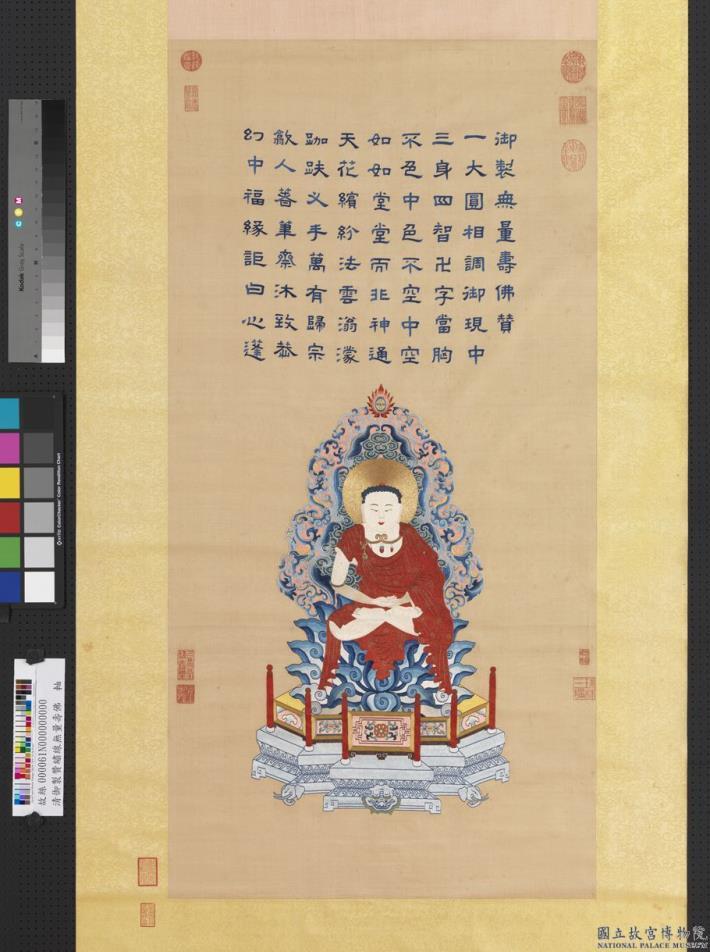 御製無量壽佛贊
一大圓相調御現中
三身四智卍字當胸
不色中色不空中空
如如堂堂而非神通
天花繽紛法雲滃濛
跏趺乂手萬有歸宗
歙人善筆齋沐致恭
幻中福緣詎曰心蓬
Kodak Gray Scale
C Y M
故絲 000061N000000000 軸
清御製贊繡線無量壽佛
國立故宮博物院
NATIONAL PALACE MUSEUM